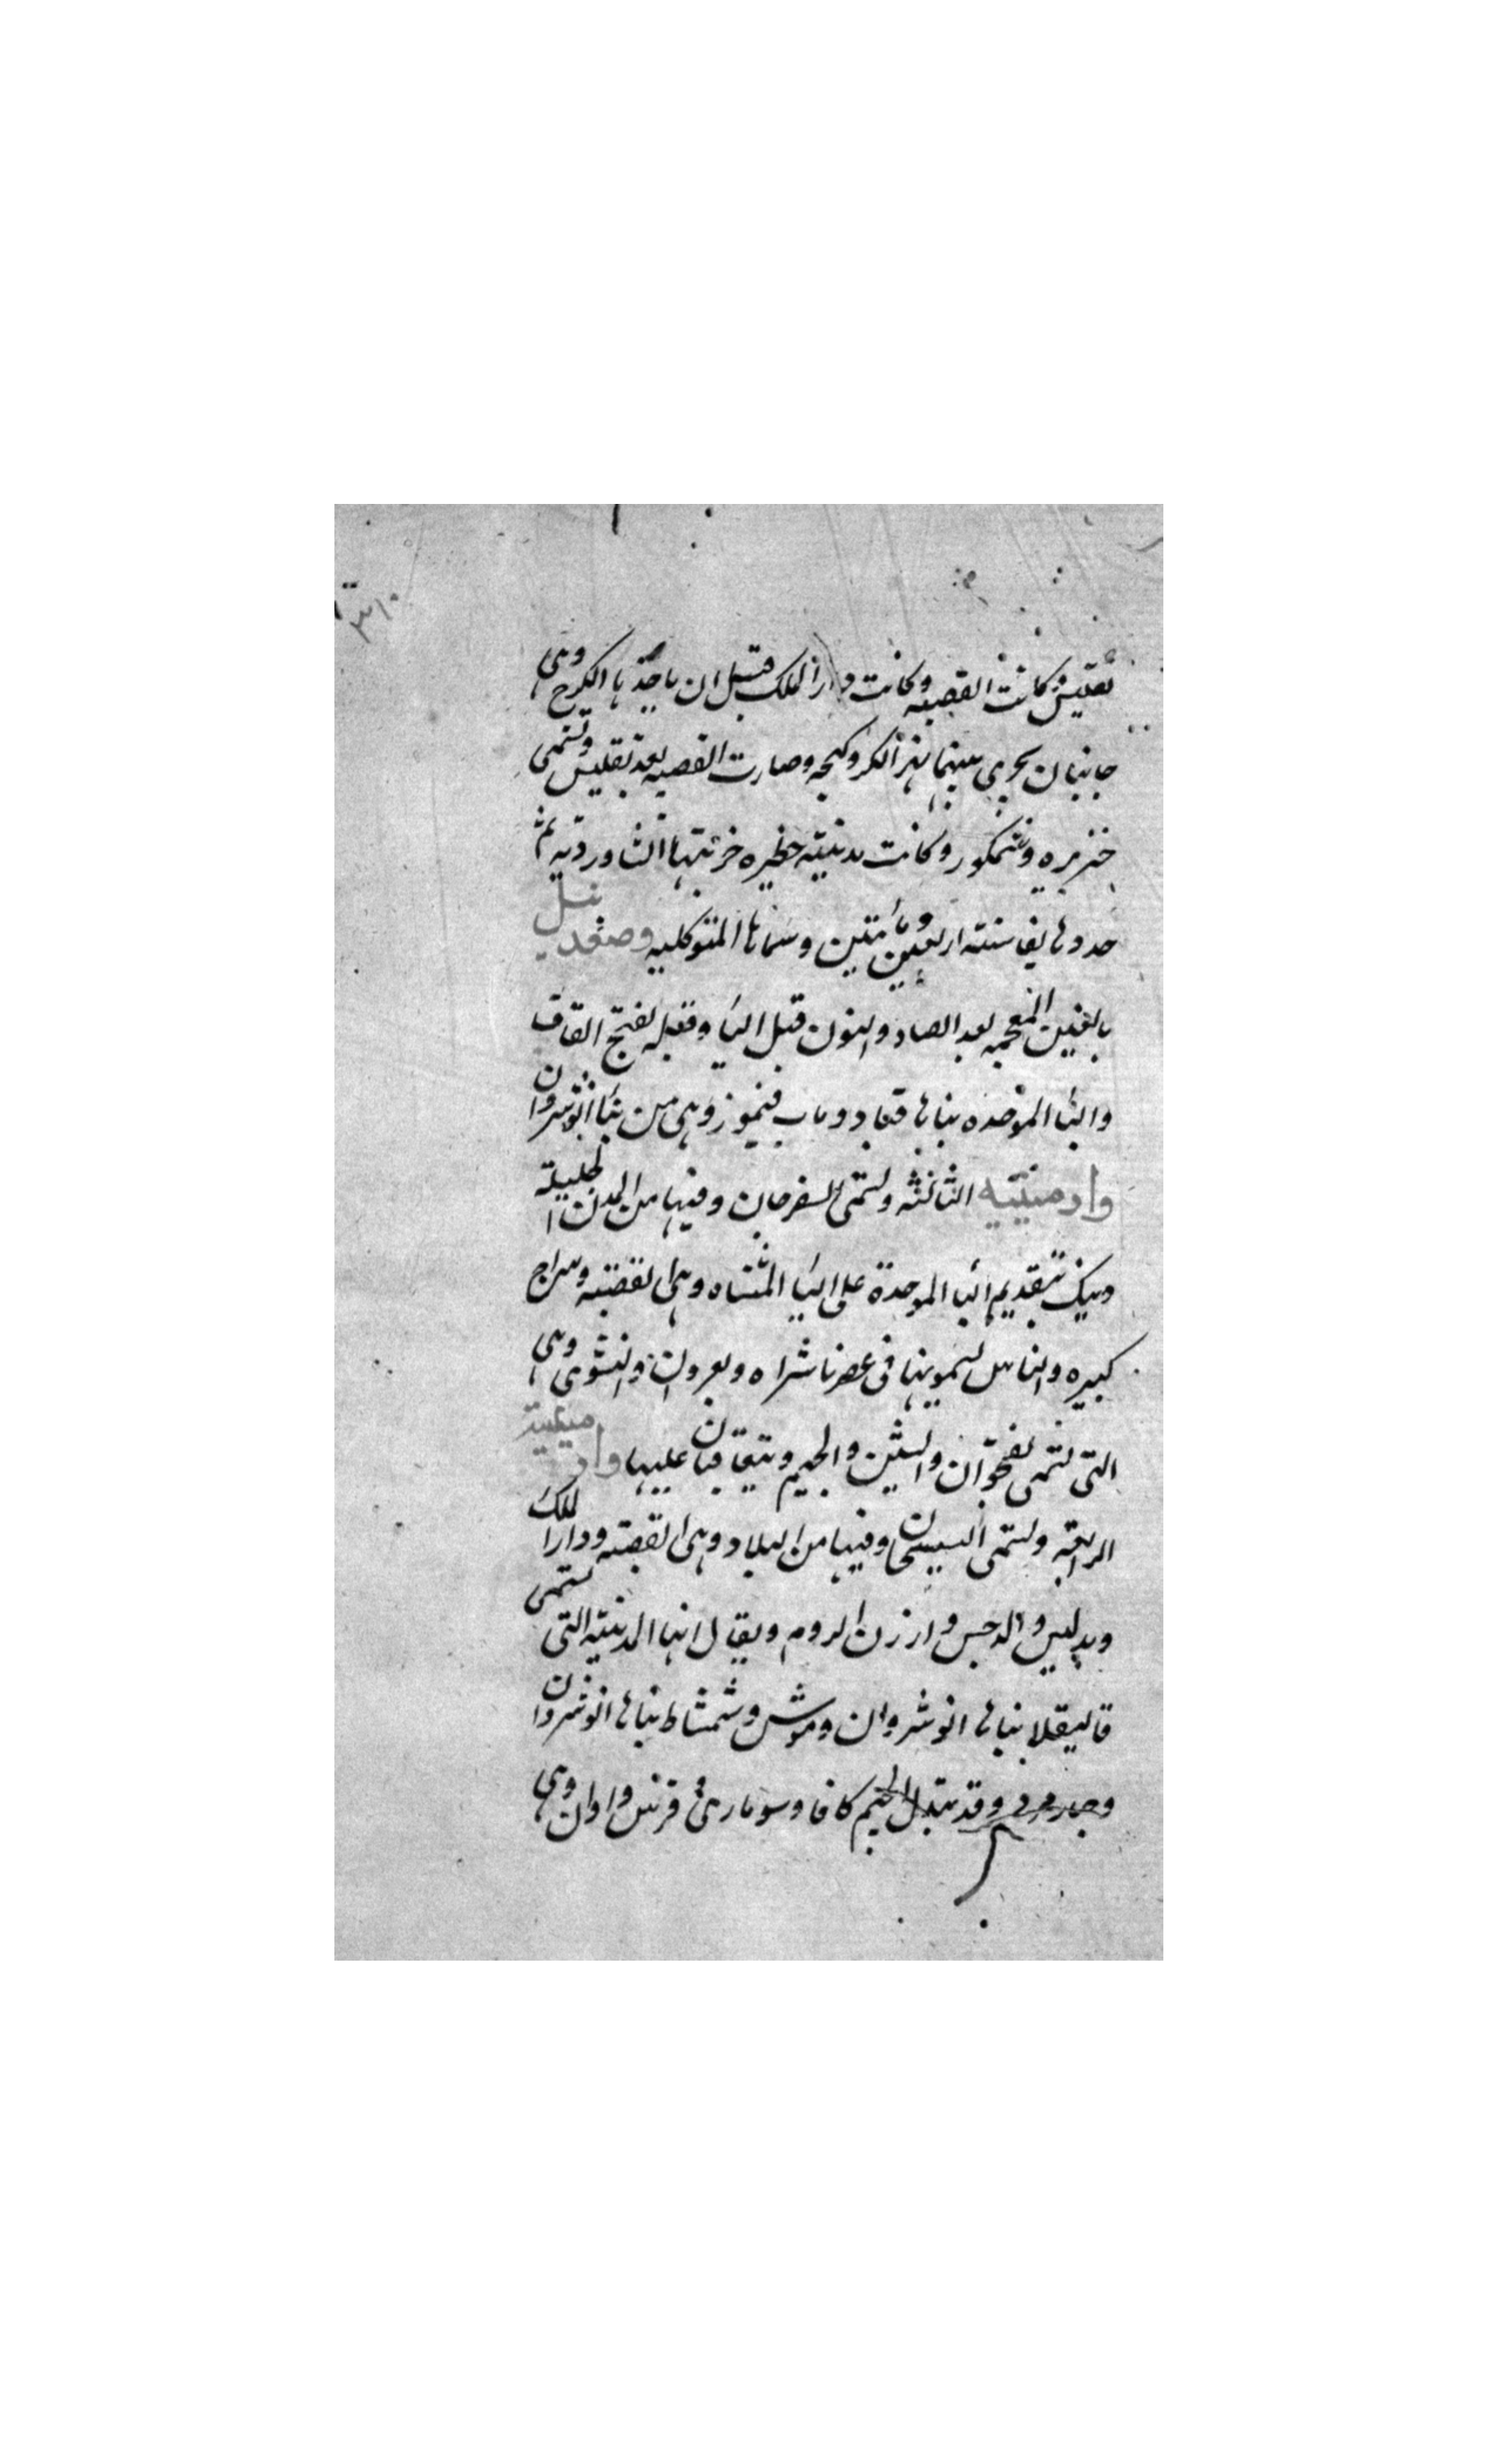 تفليس وكانت القصبه وكانت دار الملك قبل ان ياخذها الكرج وهى
جانبان يجرى بينهما نهر الكر وكنجه وصارت القصبه بعد تفليس وتسمى
خنزيره وشمكور وكانت مدينته خطيره خربتها الشاورديه ثم
جددها بغا سنته اربعين ومأتين وسماها المتوكليه وصغدبيل
بالغين المعجمه بعد الصاد والنون قبل اليا وقبله بفتح القاف
والبا الموحده بناها قباد وباب فنيروز وهى من بنا انوشروان
وارمينيه الثالثه وتسمى السفرجان وفيها من المدن الجليلة
دبيك بتقديم البا الموحدة على اليا المثناه وهى القصبه وسراج
كبيره والناس يسمونها فى عصرنا شراه وبغروان والنشوى وهى
التى تسمى نقجوان والشين والجيم يتعاقبان عليها وارمينية
الرابعة وتسمى السيسجان وفيها من البلاد وهى القصبه ودار الملك
وبدليس والدجس وارزن الروم ويقال انها المدينه التى تسمى
قاليقلا بناها انوشروان وموش وشمشاط بناها انوشروان
وقد تبدل الجيم كافا وهى قرنس واوان وهى